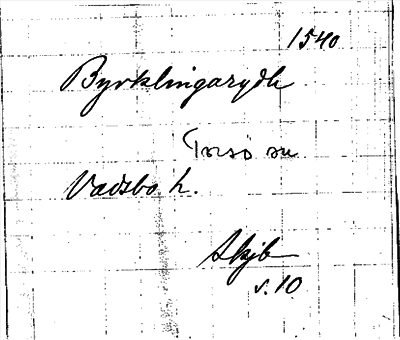 1540
Byrklingarydh
Torsö sn
Vadsbo h.
Skjb
s. 10